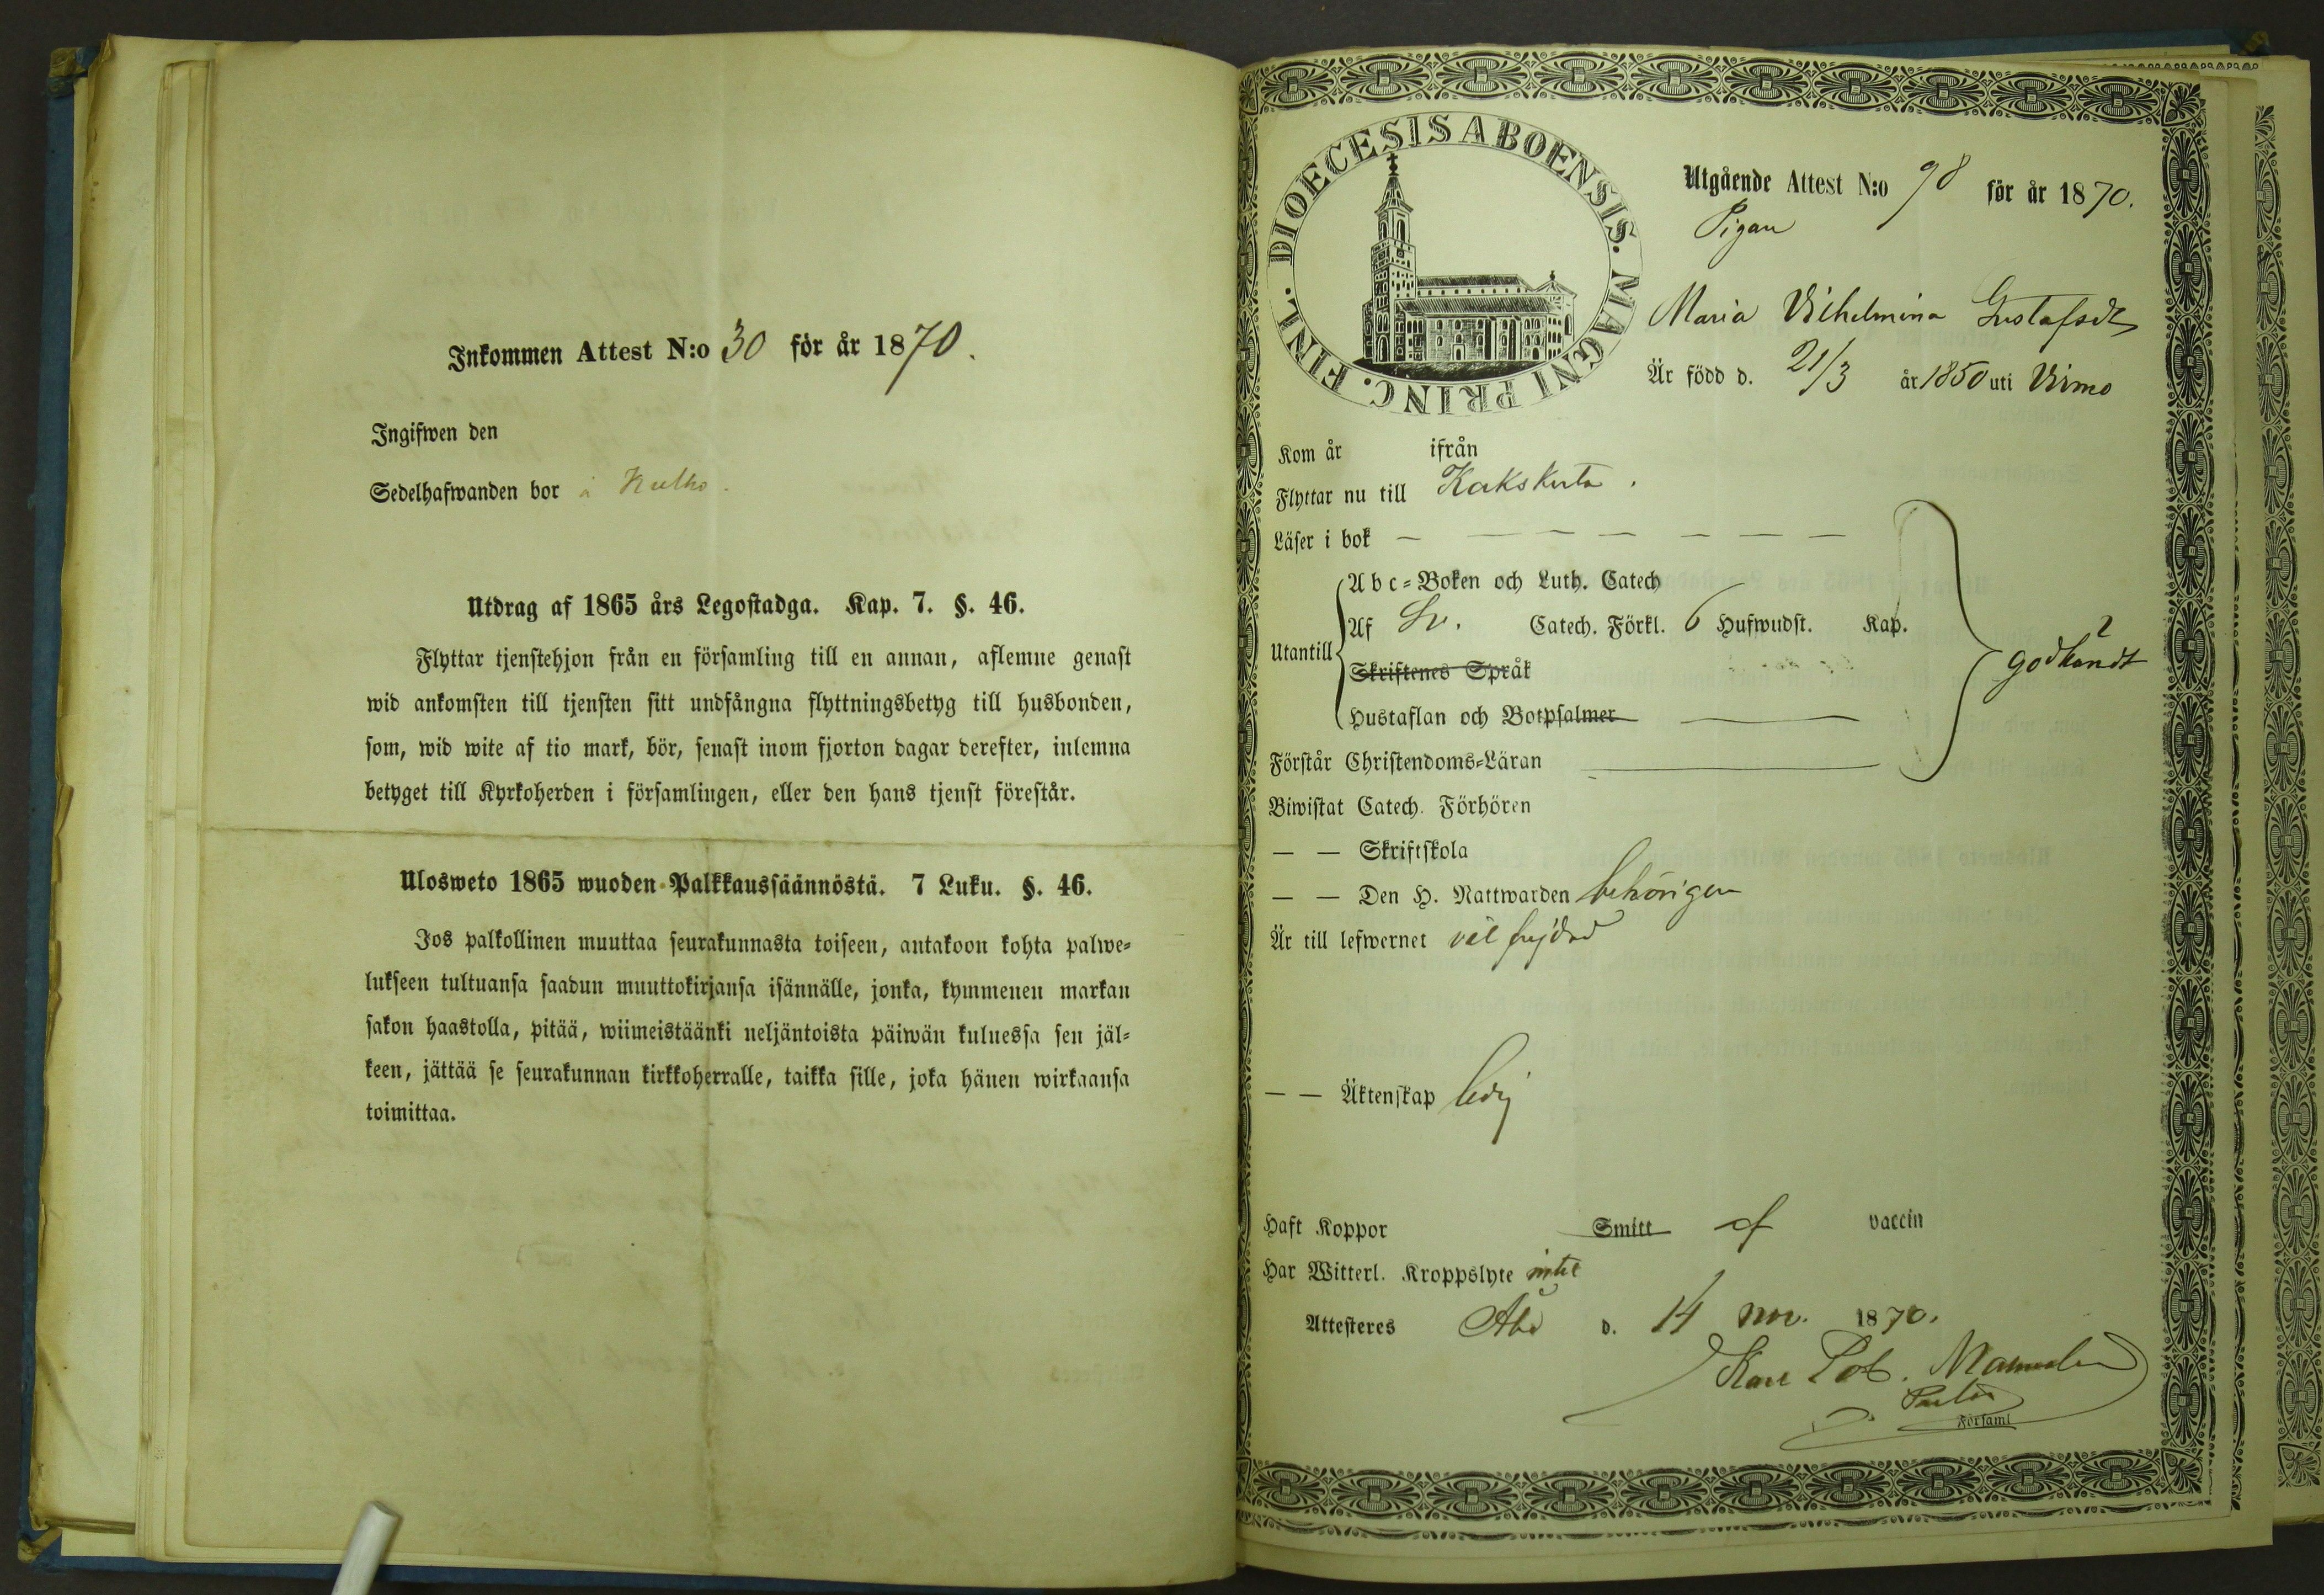 Inkommen Attest N:o 30 för år 1870.
Ingifwen den
Sedelhafwanden bor å Kulho.
Utdrag af 1865 års Legostadga. Kap. 7. §. 46.
Flyttar tjenstehjon från en församling till en annan, aflemne genast
wid ankomsten till tjensten sitt undfångna flyttningsbetyg till husbonden,
som, wid wite af tio mark, bör, senast inom fjorton dagar derefter, inlemna
betyget till Kyrkoherden i församlingen, eller den hans tjenst förestår.
Ulosweto 1865 wuoden Palkkaussäännöstä. 7 Luku. §. 46.
Jos palkollinen muuttaa seurakunnasta toiseen, antakoon kohta palwe=
lukseen tultuansa saadun muuttokirjansa isännälle, jonka, kymmenen markan
sakon haastolla, pitää, wiimeistäänki neljäntoista päiwän kuluessa sen jäl=
keen, jättää se seurakunnan kirkkoherralle, taikka sille, joka hänen wirkaansa
toimittaa.
DIOECESIS ABOENSIS. MAGNI PRINC. FINL.
Utgående Attest N:o 98 för år 1870.
Pigan
Maria Vilhelmina Gustafsdt
Är född d. 21/3 år 1850 uti Virmo
Kom år ifrån
Flyttar nu till Kakskerta.
Läser i bok — — — — — — —
Utantill
Abc=Boken och Luth. Catech
Af Sv. Catech. Förkl. 6 Hufwudst. Kap.
Skriftenes Språk
Hustaflan och Botpsalmer
godkändt
Förstår Christendoms=Läran
Biwistat Catech. Förhören
— — Skriftskola
— — Den H. Nattwarden behörigen
Är till lefwernet väl frejdad
— — Äktenskap ledig
Haft Koppor Smitt af vaccin
Har Witterl. Kroppslyte intet
Attesteres Åbo d. 14 nov. 1870.
Karl
Församl